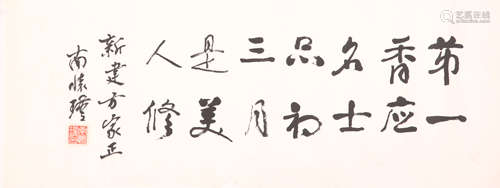 第一
香应
名士
品初
三月
是美
人修
新建方家正
南怀瑾